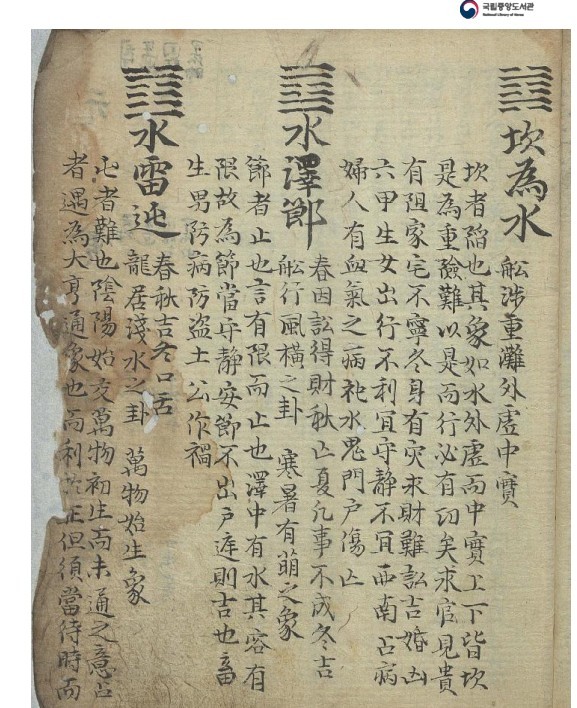 국립중앙도서관
National Library of Korea
坎為水
舩涉重灘外虛中實
坎者陷也其象如水外虛而中實上下皆坎
是為重險難以是而行必有功矣求官見貴
有阻家宅不寧冬身有灾求財難訟吉婚凶
六甲生女出行不利宜守静不宜西南占病
婦人有血氣之病祀水鬼門戶傷亡
水澤節
春因訟得財秋亡夏凡事不成冬吉
舩行風橫之卦 寒暑有萌之象
節者止也言有限而止也澤中有水其容有
限故為節當守静安節不出戶庭則吉也畜
生男防病防盗土公作禍
水雷迍
春秋吉冬口舌
龍居淺水之卦 萬物始生象
屯者難也陰陽始交萬物初生而未通之意占
者遇為大亨通象也而利於正但須當待時而